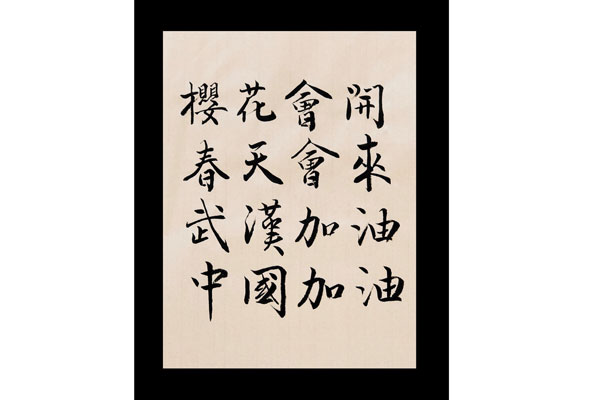 櫻花會開
春天會來
武漢加油
中國加油